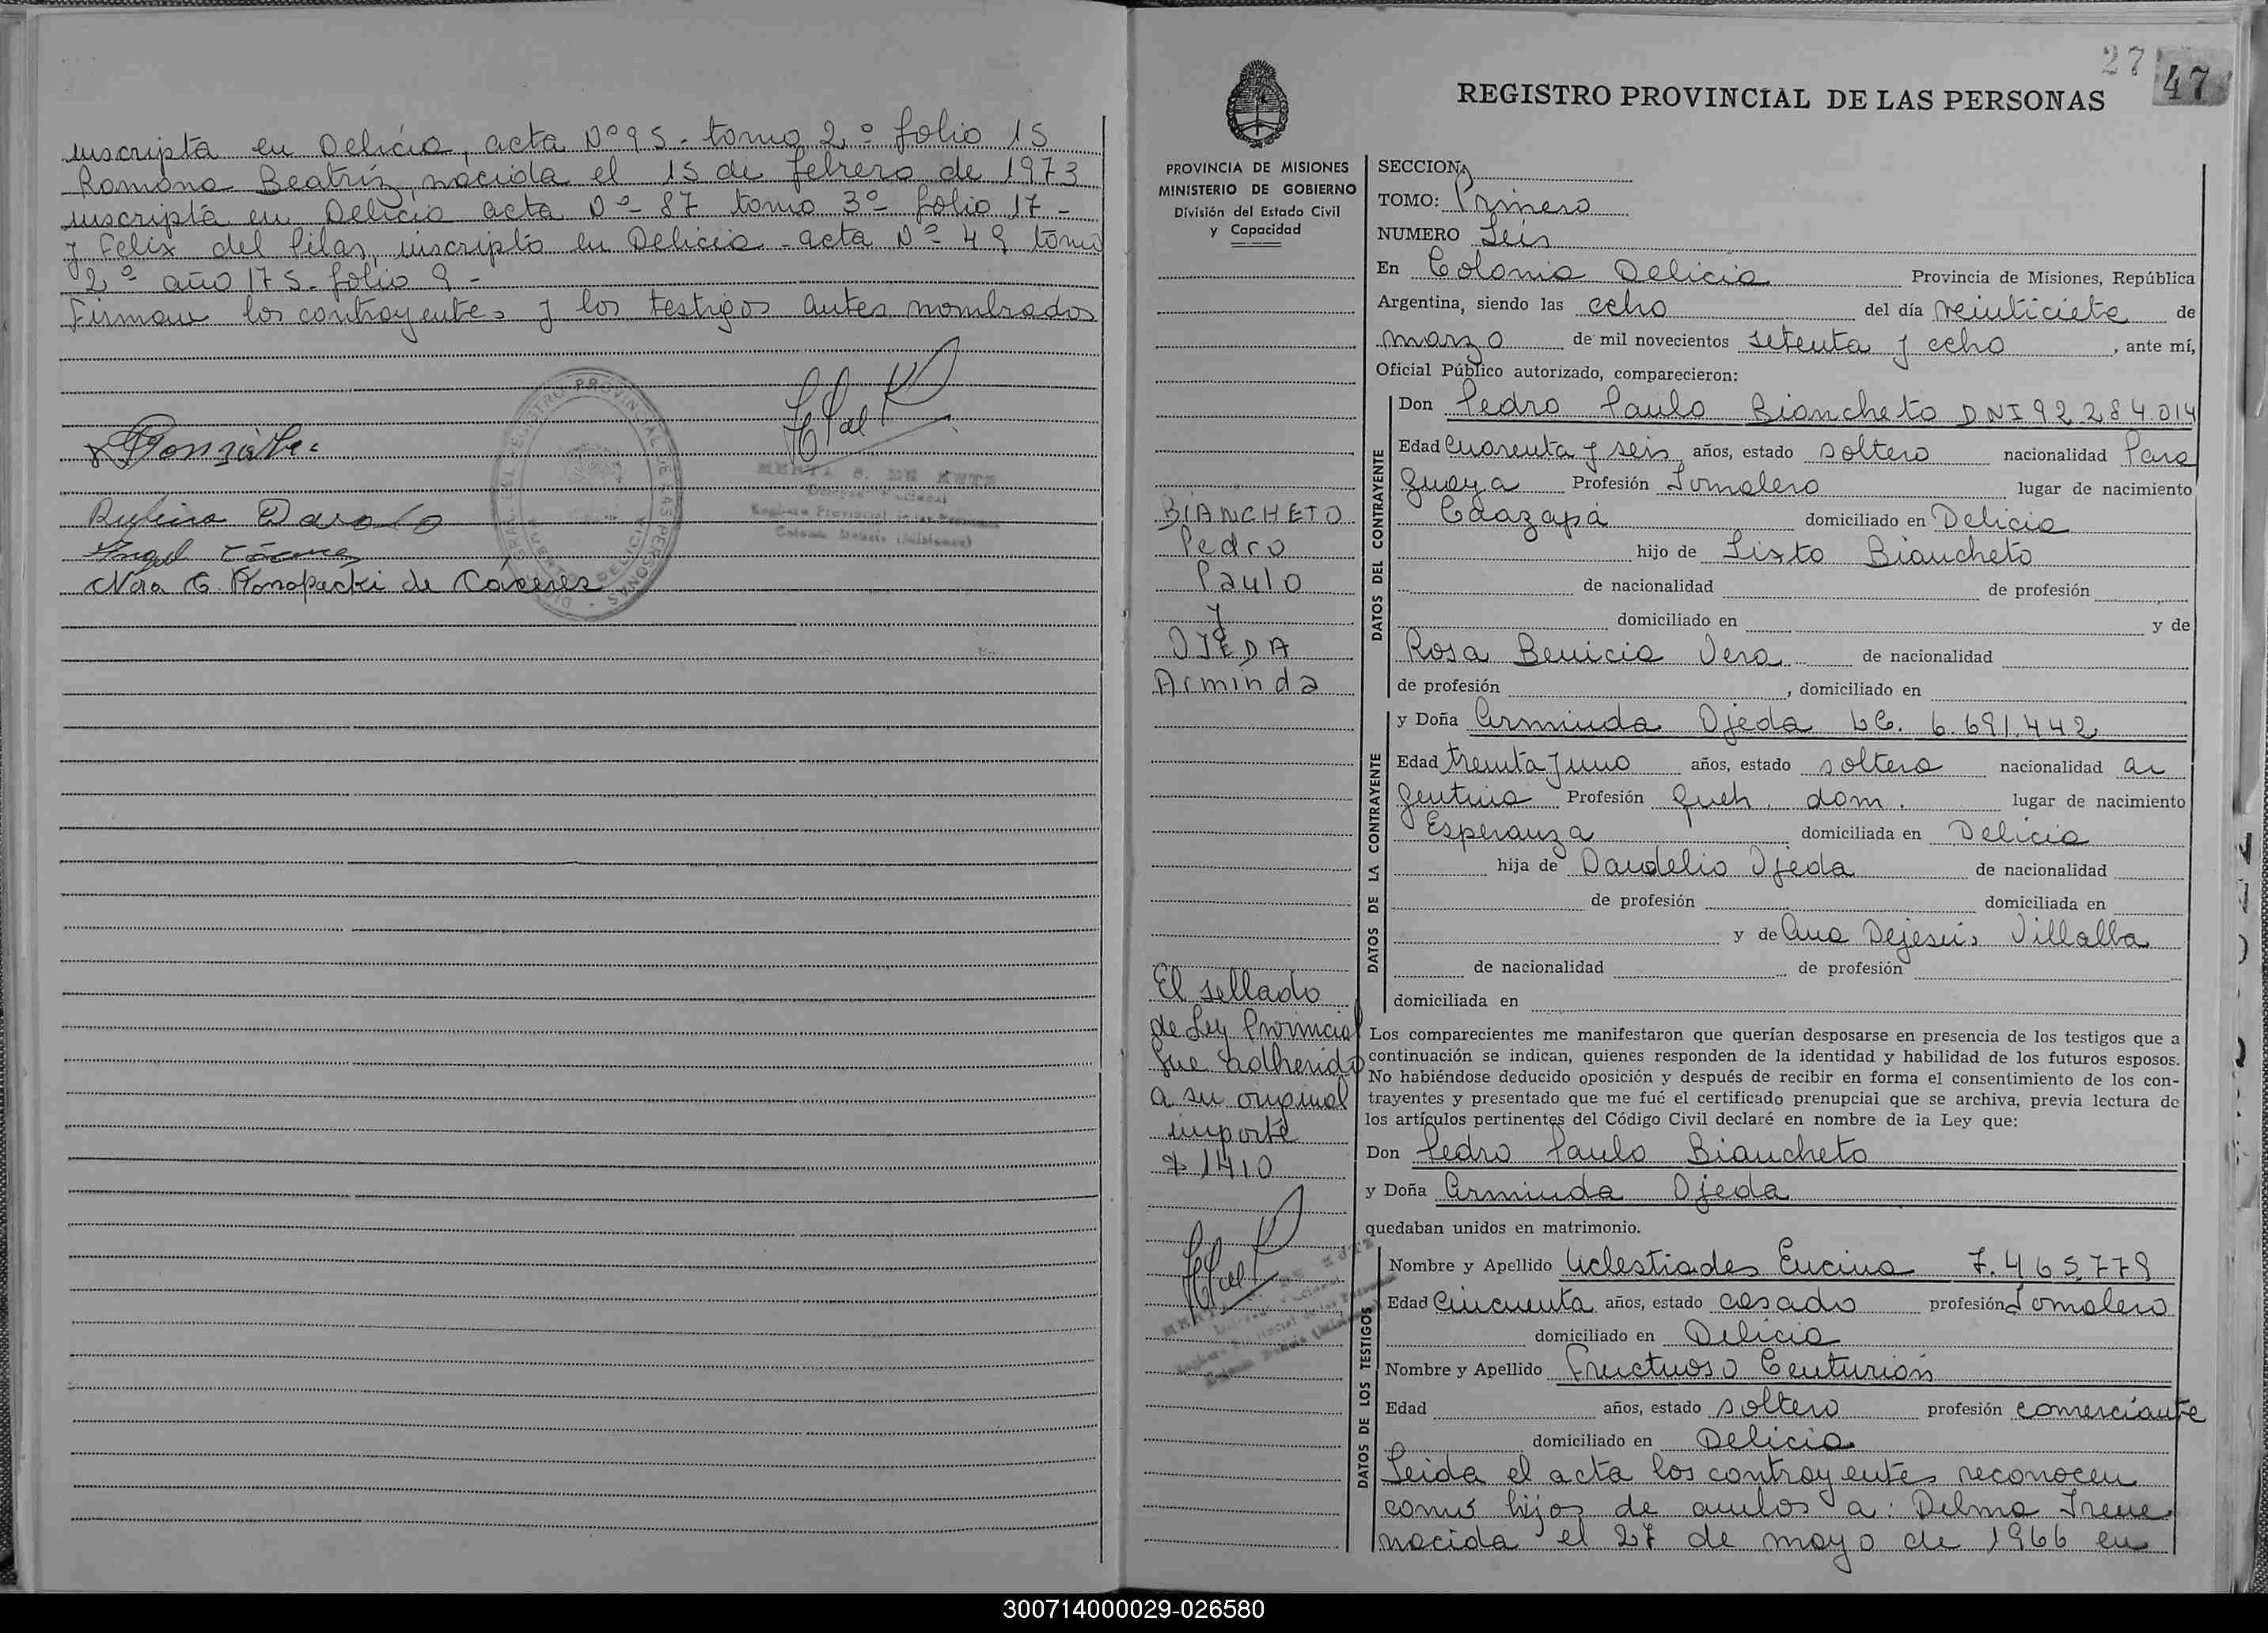 inscripta en Delicia, acta Nº 95 - tomo 2º folio 15
Ramona Beatriz, nacida el 15 de febrero de 1973
inscripta en Delicia acta Nº 87 tomo 3º folio 17 -
y Felix del Pilar, inscripto en Delicia - acta Nº 49 tomo
2º año 175 - folio 9 -
Firman los contrayentes y los testigos antes nombrados
Nora E. Konopacki de Cáceres
27 47
REGISTRO PROVINCIAL DE LAS PERSONAS
PROVINCIA DE MISIONES
MINISTERIO DE GOBIERNO
División del Estado Civil
y Capacidad
BIANCHETO
Pedro
Paulo
y
OJEDA
Arminda
El sellado
de Ley Provincial
fue adherido
a su original
importe
$ 1410
SECCION
TOMO: Primero
NUMERO Seis
En Colonia Delicia Provincia de Misiones, República
Argentina, siendo las ocho del día veinticiete de
marzo de mil novecientos setenta y ocho, ante mí,
Oficial Público autorizado, comparecieron:
DATOS DEL CONTRAYENTE
Don Pedro Paulo Biancheto DNI 92.284.014
Edad Cuarenta y seis años, estado soltero nacionalidad Para
guaya Profesión Jornalero lugar de nacimiento
Caazapá domiciliado en Delicia
hijo de Sixto Biancheto
de nacionalidad de profesión
domiciliado en y de
Rosa Benicia Vera de nacionalidad
de profesión , domiciliado en
DATOS DE LA CONTRAYENTE
y Doña Arminda Ojeda LC. 6.691.442
Edad treinta y uno años, estado soltera nacionalidad ar
gentina Profesión queh. dom. lugar de nacimiento
Esperanza domiciliada en Delicia
hija de Daudelio Ojeda de nacionalidad
de profesión domiciliada en
y de Ana Dejesús Villalba
de nacionalidad de profesión
domiciliada en
Los comparecientes me manifestaron que querían desposarse en presencia de los testigos que a
continuación se indican, quienes responden de la identidad y habilidad de los futuros esposos.
No habiéndose deducido oposición y después de recibir en forma el consentimiento de los con-
trayentes y presentado que me fué el certificado prenupcial que se archiva, previa lectura de
los artículos pertinentes del Código Civil declaré en nombre de la Ley que:
Don Pedro Paulo Biancheto
y Doña Arminda Ojeda
quedaban unidos en matrimonio.
DATOS DE LOS TESTIGOS
Nombre y Apellido Uclestiades Encina 7.465.779
Edad Cincuenta años, estado casado profesión Jornalero
domiciliado en Delicia
Nombre y Apellido Fructuoso Centurión
Edad años, estado soltero profesión comerciante
domiciliado en Delicia
Leida el acta los contrayentes reconocen
como hijos de ambos a: Delma Irene
nacida el 27 de mayo de 1966 en
300714000029-026580